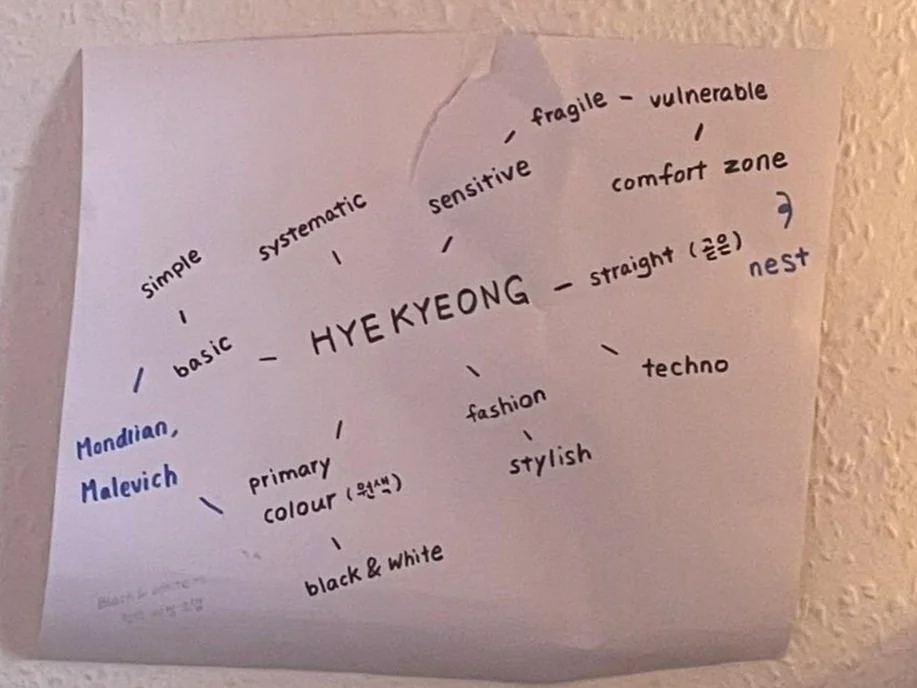 fragile - vulnerable
sensitive
comfort zone
systematic
simple
HYEKYEONG - straight (곧은)
nest
basic -
techno
fashion
Mondrian,
stylish
Malevich
primary
colour (원색)
black & white
Black & white